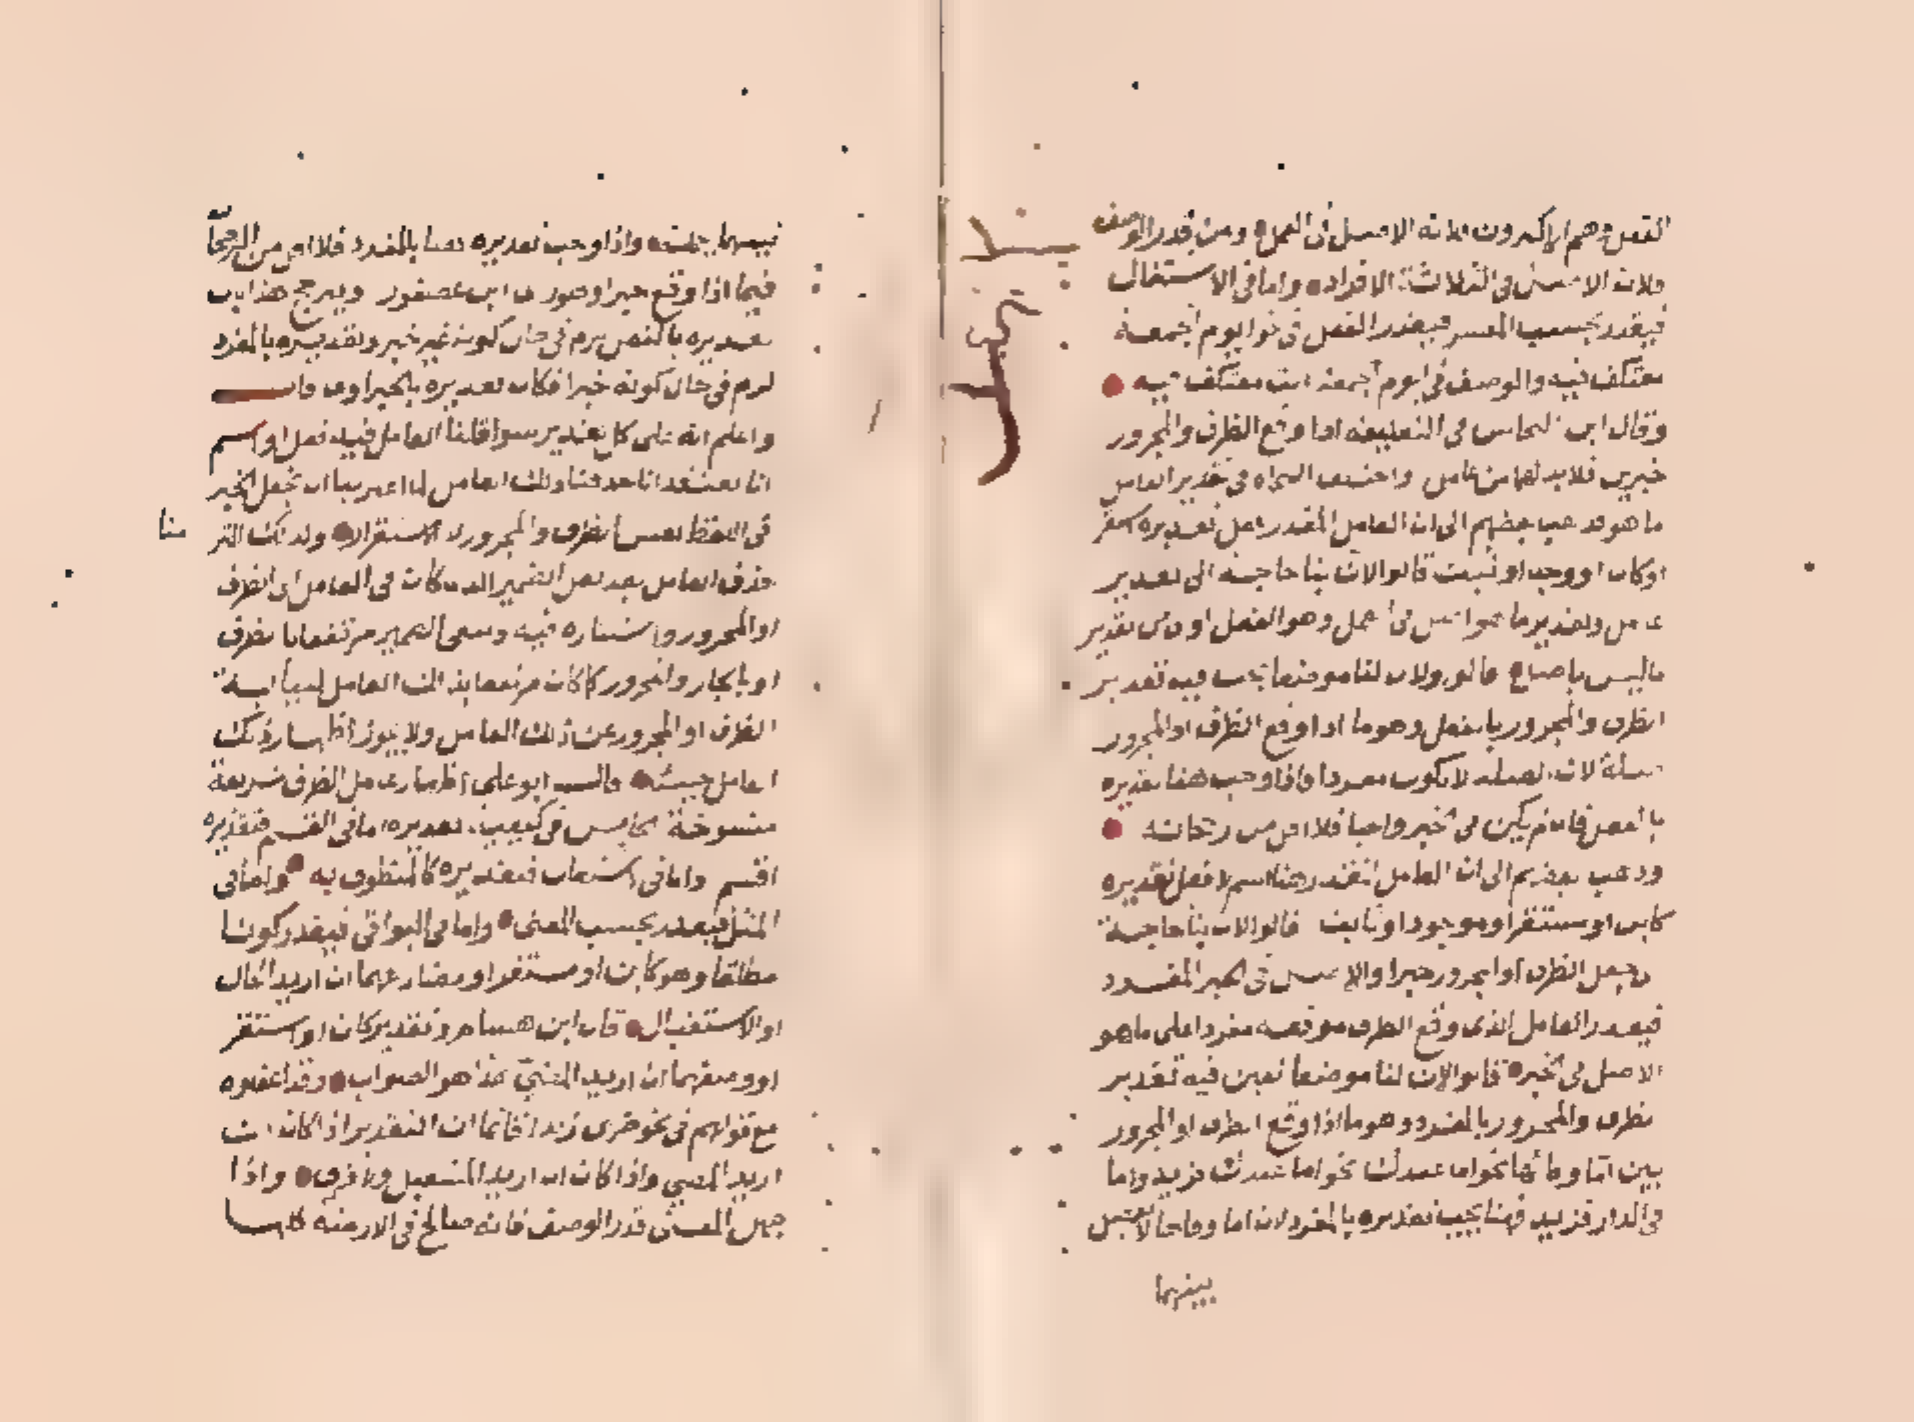 الفعل وهم الاكثرون فلانه الاصل في العمل ومن قدر الوصف
فلان الاصل في الثلاثة الافراد واما في الاشتغال
فيقدر بحسب المفسر فيقدر الفعل في نحو ايوم الجمعة
معتكف فيه والوصف في ايوم الجمعة انت معتكف فيه
وقال ابن النحاس في التعليقة اذا وقع الظرف والمجرور
خبرين فلا بد لهما من عامل واختلف النحاة في تقدير العامل
ما هو فذهب بعضهم الى ان العامل المقدر فعل تقديره استقر
او كان او وجد او ثبت قالوا لان بنا حاجة الى تقدير
عامل وتقدير ما هو اصل في العمل وهو الفعل اولى من تقدير
ما ليس باصل قالوا ولان لنا موضعا يجب فيه تقدير
الظرف والمجرور بالفعل وهو ما اذا وقع الظرف او المجرور
صلة لان الصلة لا تكون مفردا واذا وجب هنا تقديره
بالفعل فان لم يكن في الخبر واجبا فلا اقل من رجحانه
وذهب بعضهم الى ان العامل المقدر هنا اسم لا فعل تقديره
كاين او مستقر او موجود او ثابت قالوا لان بنا حاجة
الظرف او المجرور خبرا والاصل في الخبر المفرد
فيقدر العامل الذي وقع الظرف موقعه مفردا على ما هو
الاصل في الخبر قالوا لان لنا موضعا تعين فيه تقدير
الظرف والمجرور بالمفرد وهو ما اذا وقع الظرف او المجرور
بين اما وفائها نحو اما عندك فزيد واما
في الدار فزيد فهنا يجب تقديره بالمفرد لان اما وفاءها لا يفصل
بينهما
بينهما بجملة واذا وجب تقديره هنا بالمفرد فلا اقل من الرجحان
فيما اذا وقع خبرا وصورة ابن عصفور ويرجح هذا
تقديره بالفعل يلزم في حال كونه غير خبر وتقديره بالمفرد
لزم في حال كونه خبرا فكان تقديره بالخبر اولى قال
واعلم انه على كل تقدير سوا قلنا العامل فيه فعل او اسم
انا نعتقد انا حذفنا ذلك العامل لما اعربنا ان نجعل الخبر
في اللفظ نفس الظرف والمجرور لا الاستقرار ولذلك التز
منا
حذف العامل بعد نقل الضمير الذي كان في العامل الى الظرف
او المجرور واستتاره فيه وسمي الضمير مرتفعا بالظرف
او بالجار والمجرور كما كان مرتفعا بذلك العامل لنيابة
الظرف او المجرور عن ذلك العامل ولا يجوز اظهار ذلك
العامل حينئذ قال ابو علي اظهار عامل الظرف شريعة
منسوخة تقديره اما في القسم فتقديره
اقسم واما في فتقديره كالمنطوق به واما في
المثل فيقدر بحسب المعنى واما في البواقي فيقدر كونا
مطلقا وهو كاين او مستقر او مضارعهما ان اريد الحال
او الاستقبال قال ابن هشام وتقدير كان او استقر
او وصفهما ان اريد المضي هذا هو الصواب وقد اغفلوه
مع قولهم في نحو ضربي زيدا قائما ان التقدير اذ كان ان
اريد المضي واذا كان ان اريد المستقبل ولا فرق واذا
جهل المعنى قدر الوصف فانه صالح في الازمنة كلها